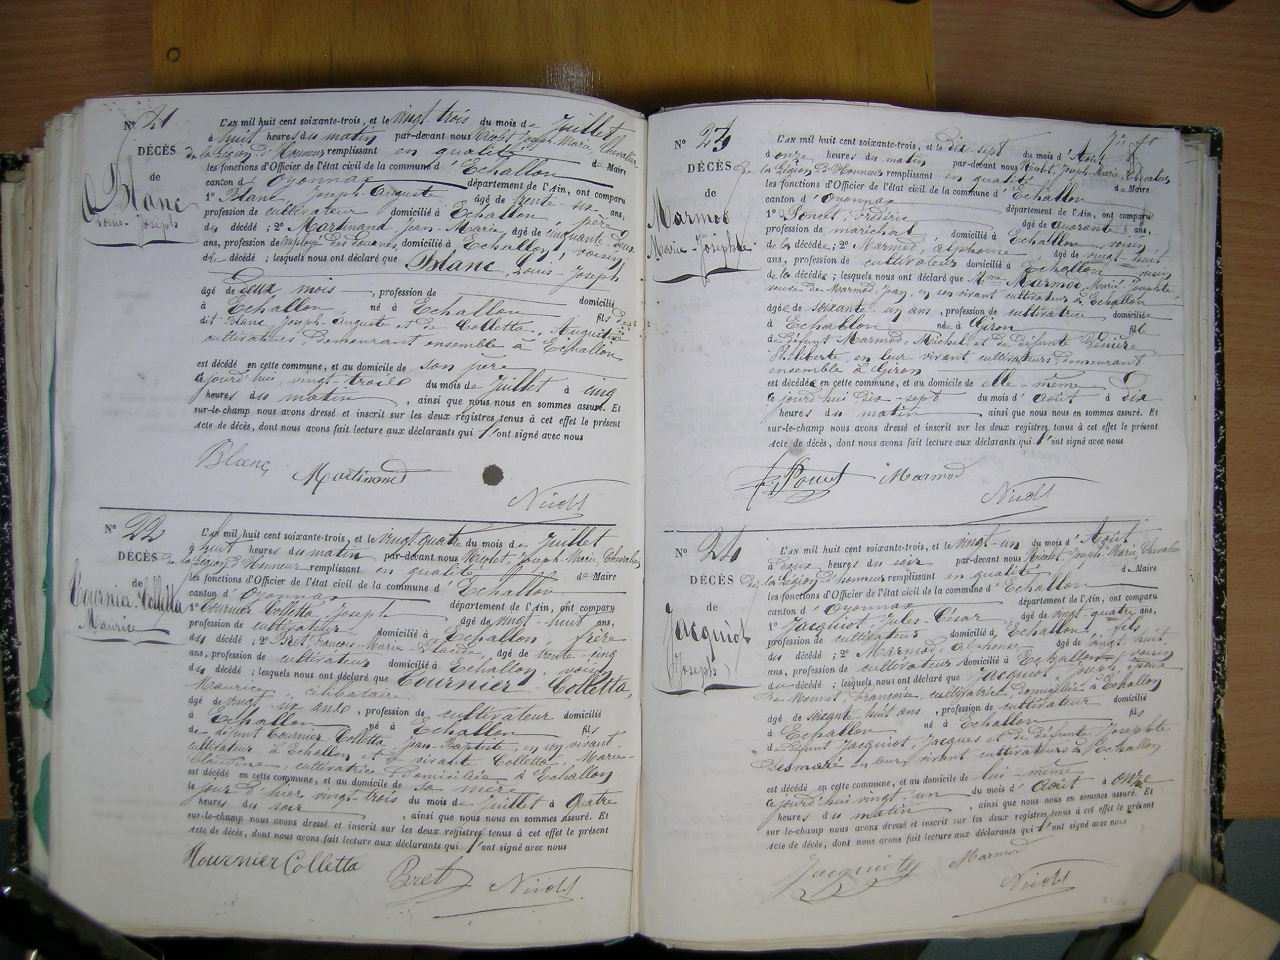 N° 21
DÉCÈS
de
Blanc
Louis-Joseph
L'AN mil huit cent soixante-trois, et le vingt trois du mois de Juillet
à huit heures du matin par-devant nous Nicolet Joseph-Marie, Chevalier
de la Légion d'Honneur remplissant en qualité de Maire
les fonctions d'Officier de l'état civil de la commune d'Echallon
canton d'Oyonnax département de l'Ain, ont comparu
1° Blanc Joseph-Auguste âgé de trente-six ans,
profession de cultivateur domicilié à Echallon, père
du décédé ; 2° Martinand Jean-Marie, âgé de cinquante-deux
ans, profession de employé des douanes, domicilié à Echallon, voisin
du décédé ; lesquels nous ont déclaré que Blanc, Louis-Joseph
âgé de deux mois, profession de domicilié
à Echallon né à Echallon fils du
dit Blanc Joseph-Auguste et de Colletta, Augustine
cultivateurs, demeurant ensemble à Echallon
est décédé en cette commune, et au domicile de son père
ce jourd'hui vingt-trois du mois de juillet à cinq
heures du matin, ainsi que nous nous en sommes assuré. Et
sur-le-champ nous avons dressé et inscrit sur les deux registres tenus à cet effet le présent
acte de décès, dont nous avons fait lecture aux déclarants qui l'ont signé avec nous
Blanc Martinand
N° 22
DÉCÈS
de
Tournier-Colletta
Maurice
L'AN mil huit cent soixante-trois, et le vingt-quatre du mois de Juillet
à huit heures du matin par-devant nous Nicolet, Joseph-Marie, Chevalier
de la Légion d'Honneur remplissant en qualité de Maire
les fonctions d'Officier de l'état civil de la commune d'Echallon
canton d'Oyonnax département de l'Ain, ont comparu
1° Tournier Colletta Joseph âgé de vingt-huit ans,
profession de cultivateur domicilié à Echallon, frère
du décédé ; 2° Bret François-Marie-Claude, âgé de trente-cinq
ans, profession de cultivateur domicilié à Echallon, voisin
du décédé ; lesquels nous ont déclaré que Tournier-Colletta,
Maurice, célibataire
âgé de vingt-six ans, profession de cultivateur domicilié
à Echallon né à Echallon fils
de défunt Tournier Colletta Jean-Baptiste en son vivant
cultivateur à Echallon et de vivant Colletta, Marie-
Claudine, cultivatrice, domiciliée à Echallon
est décédé en cette commune, et au domicile de sa mère
le jour d'hier vingt-trois du mois de juillet à quatre
heures du soir, ainsi que nous nous en sommes assuré. Et
sur-le-champ nous avons dressé et inscrit sur les deux registres tenus à cet effet le présent
acte de décès, dont nous avons fait lecture aux déclarants qui l'ont signé avec nous
Tournier Colletta Bret
N° 23
DÉCÈS
de
Marmod
Marie-Josephte
L'AN mil huit cent soixante-trois, et le dix sept du mois d'Août
à onze heures du matin par-devant nous Nicolet, Joseph-Marie, Chevalier
de la Légion d'Honneur remplissant en qualité de Maire
les fonctions d'Officier de l'état civil de la commune d'Echallon
canton d'Oyonnax département de l'Ain, ont comparu
1° Poncet, Frédéric âgé de quarante ans,
profession de maréchal domicilié à Echallon voisin
de la décédée ; 2° Marmod, Alphonse âgé de vingt-huit
ans, profession de cultivateur domicilié à Echallon voisin
de la décédée ; lesquels nous ont déclaré que Marmod, Marie-Josephte
veuve de Marmod Jean, en son vivant cultivateur à Echallon
âgée de soixante-un ans, profession de cultivatrice domiciliée
à Echallon née à Giron fille
de défunt Marmod, Michel et de défunte
Philiberte, en leur vivant cultivateurs demeurant
ensemble à Giron
est décédée en cette commune, et au domicile de elle-même
ce jourd'hui dix-sept du mois d'août à dix
heures du matin, ainsi que nous nous en sommes assuré. Et
sur-le-champ nous avons dressé et inscrit sur les deux registres tenus à cet effet le présent
acte de décès, dont nous avons fait lecture aux déclarants qui l'ont signé avec nous
Poncet Marmod
N° 24
DÉCÈS
de
Jacquiot
Joseph
L'AN mil huit cent soixante-trois, et le vingt-un du mois d'Août
à deux heures du soir par-devant nous Nicolet Joseph-Marie Chevalier
de la Légion d'honneur remplissant en qualité de Maire
les fonctions d'Officier de l'état civil de la commune d'Echallon
canton d'Oyonnax département de l'Ain, ont comparu
1° Jacquiot Jules-César âgé de vingt-quatre ans,
profession de cultivateur domicilié à Echallon, fils
du décédé ; 2° Marmod Alphonse âgé de vingt huit
ans, profession de cultivateur domicilié à Echallon, voisin
du décédé ; lesquels nous ont déclaré que Jacquiot, Joseph,
Françoise, cultivatrice, domiciliée à Echallon
âgé de soixante-huit ans, profession de cultivateur domicilié
à Echallon né à Echallon fils
de défunt Jacquiot, Jacques et de défunte Josephte
en leur vivant cultivateurs à Echallon
est décédé en cette commune, et au domicile de lui-même
ce jourd'hui vingt un du mois d'août à onze
heures du matin, ainsi que nous nous en sommes assuré. Et
sur-le-champ nous avons dressé et inscrit sur les deux registres tenus à cet effet le présent
acte de décès, dont nous avons fait lecture aux déclarants qui l'ont signé avec nous
Jacquiot Marmod